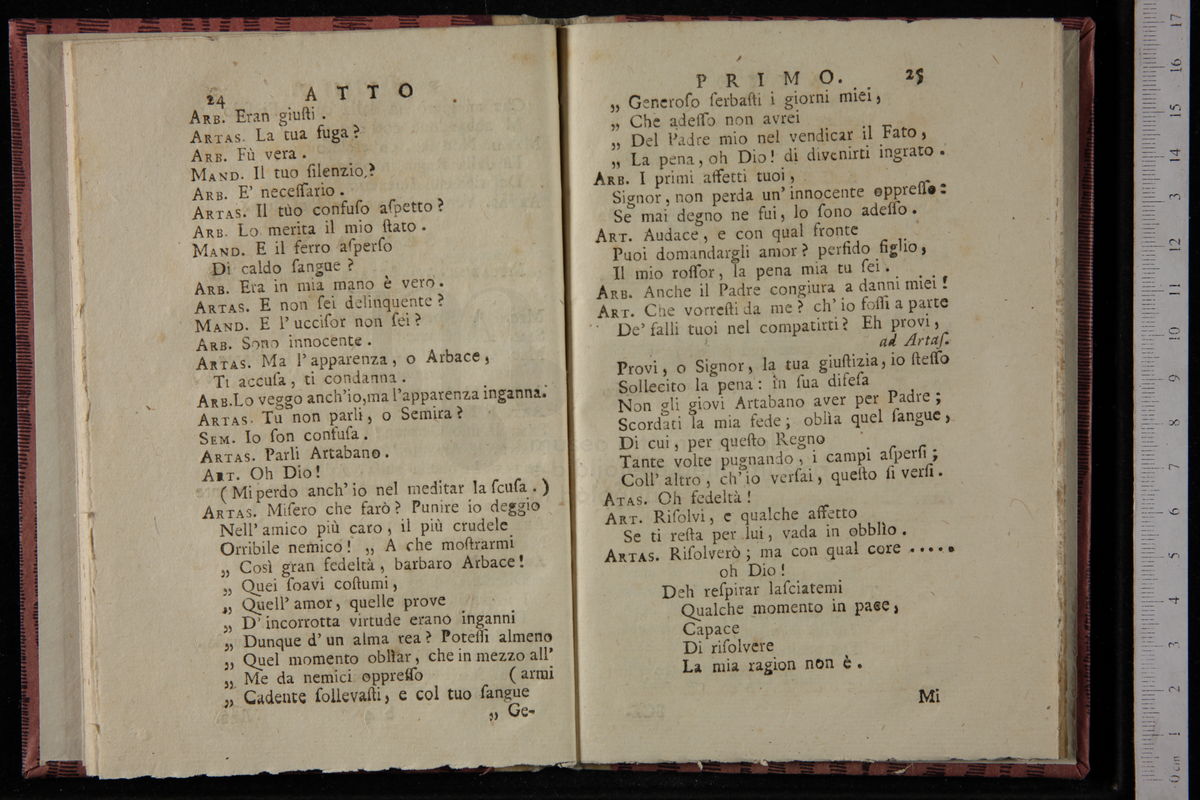 24 ATTO
ARB. Eran giuſti .
ARTAS. La tua fuga ?
ARB. Fù vera .
MAND. Il tuo ſilenzio ?
ARB. E' neceſſario .
ARTAS. Il tùo confuſo aſpetto ?
ARB. Lo merita il mio ſtato .
MAND. E il ferro aſperſo
Di caldo ſangue ?
ARB. Era in mia mano è vero .
ARTAS. E non ſei delinquente ?
MAND. E l'ucciſor non ſei ?
ARB. Sono innocente .
ARTAS. Ma l'apparenza , o Arbace ,
Ti accuſa , ti condanna .
ARB. Lo veggo anch'io, ma l'apparenza inganna.
ARTAS. Tu non parli , o Semira ?
SEM. Io ſon confuſa .
ARTAS. Parli Artabano .
ART. Oh Dio !
( Mi perdo anch' io nel meditar la ſcuſa . )
ARTAS. Miſero che farò ? Punire io deggio
Nell' amico più caro , il più crudele
Orribile nemico ! „ A che moſtrarmi
„ Così gran fedeltà , barbaro Arbace !
„ Quei ſoavi coſtumi ,
„ Quell' amor , quelle prove
„ D' incorrotta virtude erano inganni
„ Dunque d' un alma rea ? Poteſſi almeno
„ Quel momento oblìar , che in mezzo all'
„ Me da nemici oppreſſo ( armi
„ Cadente ſollevaſti , e col tuo ſangue
„ Ge-
PRIMO. 25
„ Generoſo ſerbaſti i giorni miei ,
„ Che adeſſo non avrei
„ Del Padre mio nel vendicar il Fato ,
„ La pena , oh Dio ! di divenirti ingrato .
ARB. I primi affetti tuoi ,
Signor , non perda un' innocente oppreſſo :
Se mai degno ne fui , lo ſono adeſſo .
ART. Audace , e con qual fronte
Puoi domandargli amor ? perfido figlio ,
Il mio roſſor , la pena mia tu ſei .
ARB. Anche il Padre congiura a danni miei !
ART. Che vorreſti da me ? ch' io foſſi a parte
De' falli tuoi nel compatirti ? Eh provi ,
ad Artaſ.
Provi , o Signor , la tua giuſtizia , io ſteſſo
Sollecito la pena : in ſua difeſa
Non gli giovi Artabano aver per Padre ;
Scordati la mia fede ; oblìa quel ſangue ,
Di cui , per queſto Regno
Tante volte pugnando , i campi aſperſi ;
Coll' altro , ch' io verſai , queſto ſi verſi .
ATAS. Oh fedeltà !
ART. Riſolvi , e qualche affetto
Se ti reſta per lui , vada in obblìo .
ARTAS. Riſolverò ; ma con qual core .....
oh Dio !
Deh reſpirar laſciatemi
Qualche momento in pace ,
Capace
Di riſolvere
La mia ragion non è .
Mi